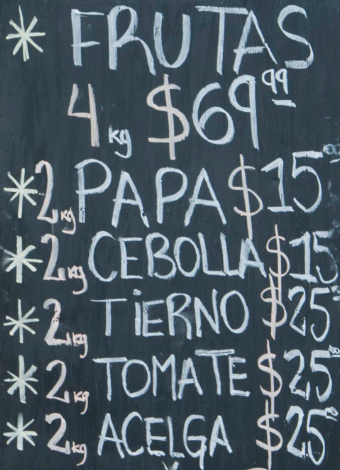 * FRUTAS
4 kg $69⁹⁹
* 2 kg PAPA $15⁰⁰
* 2 kg CEBOLLA $15
* 2 kg TiERNO $25
* 2 kg TOMATE $25
* 2 kg ACELGA $25